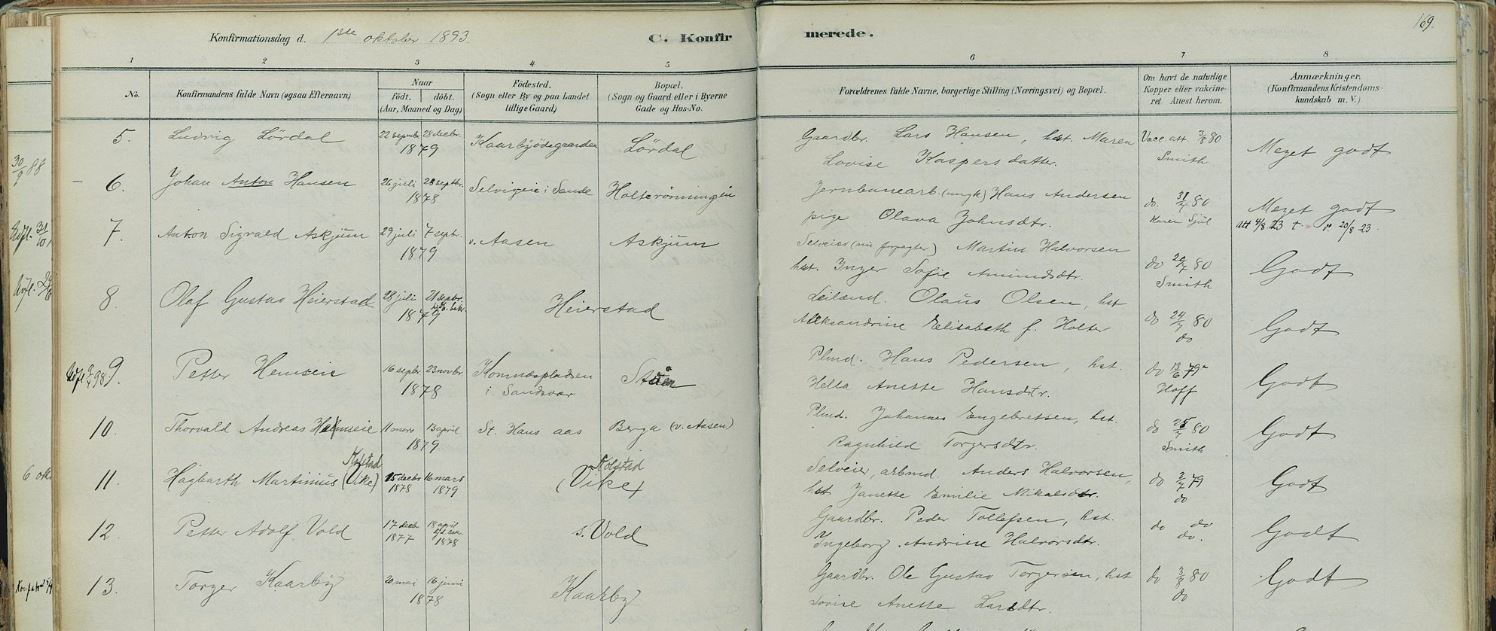 169.
Konfirmationsdag d. 1ste oktober 1893.
C. Konfirmerede.
1 2 3 4 5 6 7 8
No. Konfirmandens fulde Navn (ogsaa Efternavn)
Naar
født. døbt.
(Aar, Maaned og Dag)
Fødested.
(Sogn eller By og paa Landet
tillige Gaard)
Bopæl.
(Sogn og Gaard eller i Byerne
Gade og Hus-No.
Forældrenes fulde Navne, borgerlige Stilling (Næringsvei) og Bopæl.
Om havt de naturlige
Kopper eller vakcine-
ret Attest herom.
Anmærkninger.
(Konfirmandens Kristendoms-
kundskab m. V.)
5. Ludvig Lørdal 22 septbr 28 decbr 1879 Lørdal
Gaardbr. Lars Hansen, hst. Maren
Lovise Kaspersdatter.
Vacc. att. 80 Smith Meget godt
6. Johan Anton Hansen 26 juli septbr. 1878 i Sande
Jernbanearb. (ungk) Hans Andersen
pige Olava Johnsdtr.
do. 80 Meget godt
7. Anton Sigvald Askjum 29 juli 7 sept. 1879 v. Aasen Askjum
Martin Halvorsen
hst. Inger Sofie Amundsdtr.
do 80 Smith Godt
8. Olaf Gustav Heierstad 28 juli 1879 Heierstad
Leilænd. Olaus Olsen, hst
Aleksandrine Elisabeth f. Holter
do 80 do Godt
9. Petter Hansen 16 septbr 23 novbr 1878 i Sandsvær
Plmd. Hans Pedersen, hst.
Hella Anette Hansdtr.
do 79 Hoff Godt
10. Thorvald Andreas 11 mars 13 april 1879 St. Hans aas Berga (v. Aasen)
Plmd. Johannes Engebretsen, hst.
Ragnhild Torgersdtr.
do 80 Smith Godt
11. Hagbarth Martinius (Vike) Kolstad 15 decbr 1878 16 mars 1879 Kolstad (Vike)
Selveier, arbmd. Anders Halvorsen,
hst Janette Emilie Mikalsdtr.
do 79 do Godt
12. Petter Adolf Vold 17 decbr 1877 18 april 1878 s. Vold
Gaardbr. Peder Tollefsen, hst.
Ingeborg Andrine Halvorsdtr.
do do do. Godt
13. Torger Kaarby mai 16 juni 1878 Kaarby
Gaardbr. Ole Gustav Torgersen, hst
Lovise Anette Larsdtr.
do 80 do Godt